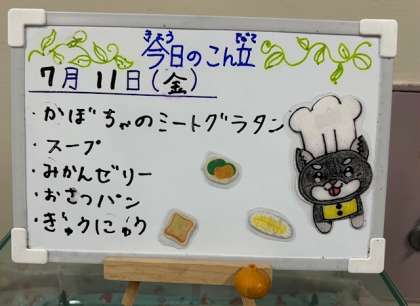 今日のこん立
きょう だて
7月 11日(金)
・かぼちゃのミートグラタン
・スープ
・みかんゼリー
・おさつパン
・ぎゅうにゅう